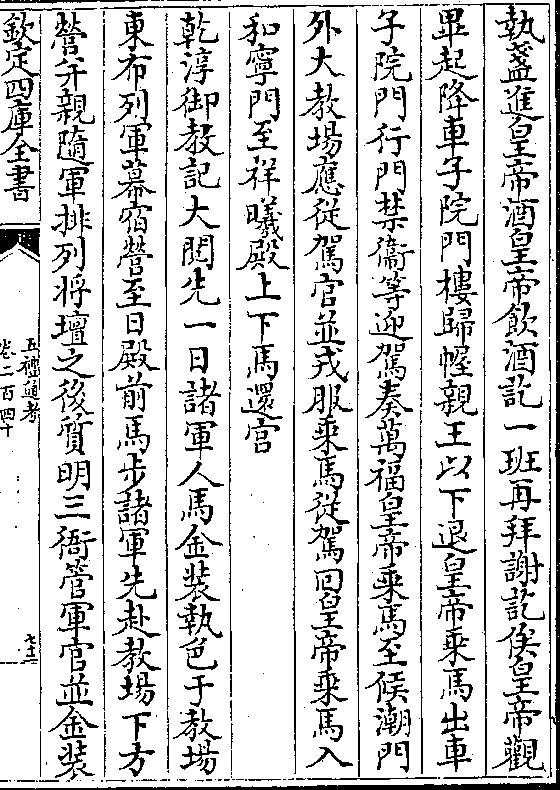 執盞進皇帝酒皇帝飲酒訖一班再拜謝訖俟皇帝觀
畢起降車子院門樓歸幄親王以下退皇帝乘馬出車
子院門行門禁衞等迎駕奏萬福皇帝乘馬至候潮門
外大教場應從駕官並戎服乘馬從駕回皇帝乘馬入
和寧門至祥曦殿上下馬還宫
乾淳御教記大閲先一日諸軍人馬金装執色于教場
東布列軍幕宿營至日殿前馬步諸軍先赴教場下方
營并親隨軍排列将壇之後質明三衙管軍官並金装
欽定四庫全書
五禮通考
卷二百四十